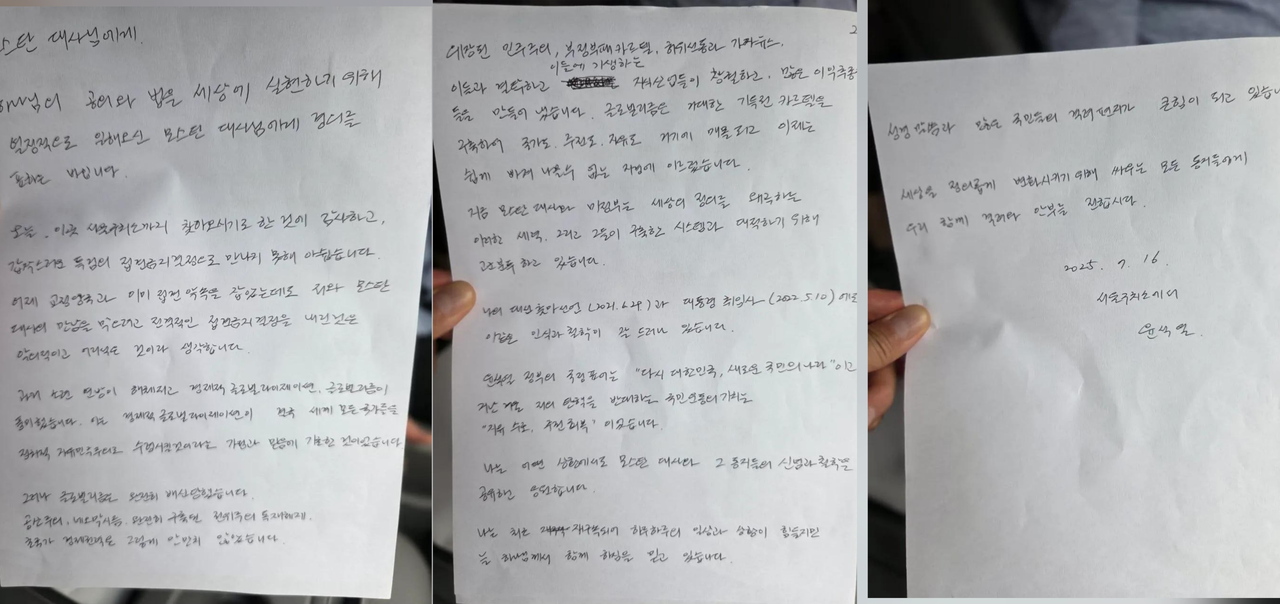 스탄 대사님에게.
하나님의 공의와 법을 세상에 실현하기 위해
열정적으로 일해오신 모스탄 대사님에게 경의를
표하는 바입니다.
오늘, 이곳 서울구치소까지 찾아오시기로 한 것이 감사하고,
갑작스러운 특검의 접견금지결정으로 만나지 못해 아쉽습니다.
어제 교정당국과 이미 접견 약속을 잡았는데도 저와 모스탄
대사의 만남을 막으려고 전격적인 접견금지결정을 내린 것은
악의적이고 어리석은 것이라 생각합니다.
과거 소련 연방이 해체되고 경제적 글로벌라이제이션, 글로벌리즘이
풍미했습니다. 이는 경제적 글로벌라이제이션이 결국 세계 모든 국가들을
정치적 자유민주주의로 수렴시킬것이라는 가정과 믿음에 기초한 것이었습니다
그러나 글로벌리즘은 완전히 배신당했습니다.
공산주의, 네오막시즘, 완전히 구축된 전체주의 독재체제,
초국가 경제권력은 그렇게 만만히 않았습니다.
2
타락된 민주주의, 부정부패 카르텔, 허위선동과 가짜뉴스,
이들에 기생하는
이들과 결탁하고 지식산업들이 창궐하고, 많은 이익추종
들을 만들어 냈습니다. 글로벌리즘은 거대한 기득권 카르텔을
구축하여 국가도, 주권도, 자유도 거기에 매몰되고 이제는
쉽게 빠져 나올수 없는 지경에 이르렀습니다.
지금 모스탄 대사와 미정부는 세상의 정의를 왜곡하는
이러한 세력, 그리고 그들이 구축한 시스템과 대적하기 위해
고군분투 하고 있습니다.
나의 대선출마선언 (2021.6.29)과 대통령 취임사 (2022.5.10)에도
이같은 인식과 철학이 잘 드러나 있습니다.
윤석열 정부의 국정표어는 "다시 대한민국, 새로운 국민의 나라"이고
지난 겨울 저의 탄핵을 반대하는 국민운동의 가치는
"자유 수호, 주권 회복" 이었습니다.
나는 어떤 상황에서도 모스탄 대사와 그 동지들의 신념과 철학을
공유하고 응원합니다.
나는 최근 재구속되어 하루하루의 일상과 상황이 힘들지만
늘 하나님께서 함께 하심을 믿고 있습니다.
성경 말씀과 많은 국민들의 격려편지가 큰힘이 되고 있습니
세상을 정의롭게 변화시키기 위해 싸우는 모든 동지들에게
우리 함께 격려와 안부를 전합시다.
2025. 7. 16.
서울구치소에서
윤석열.